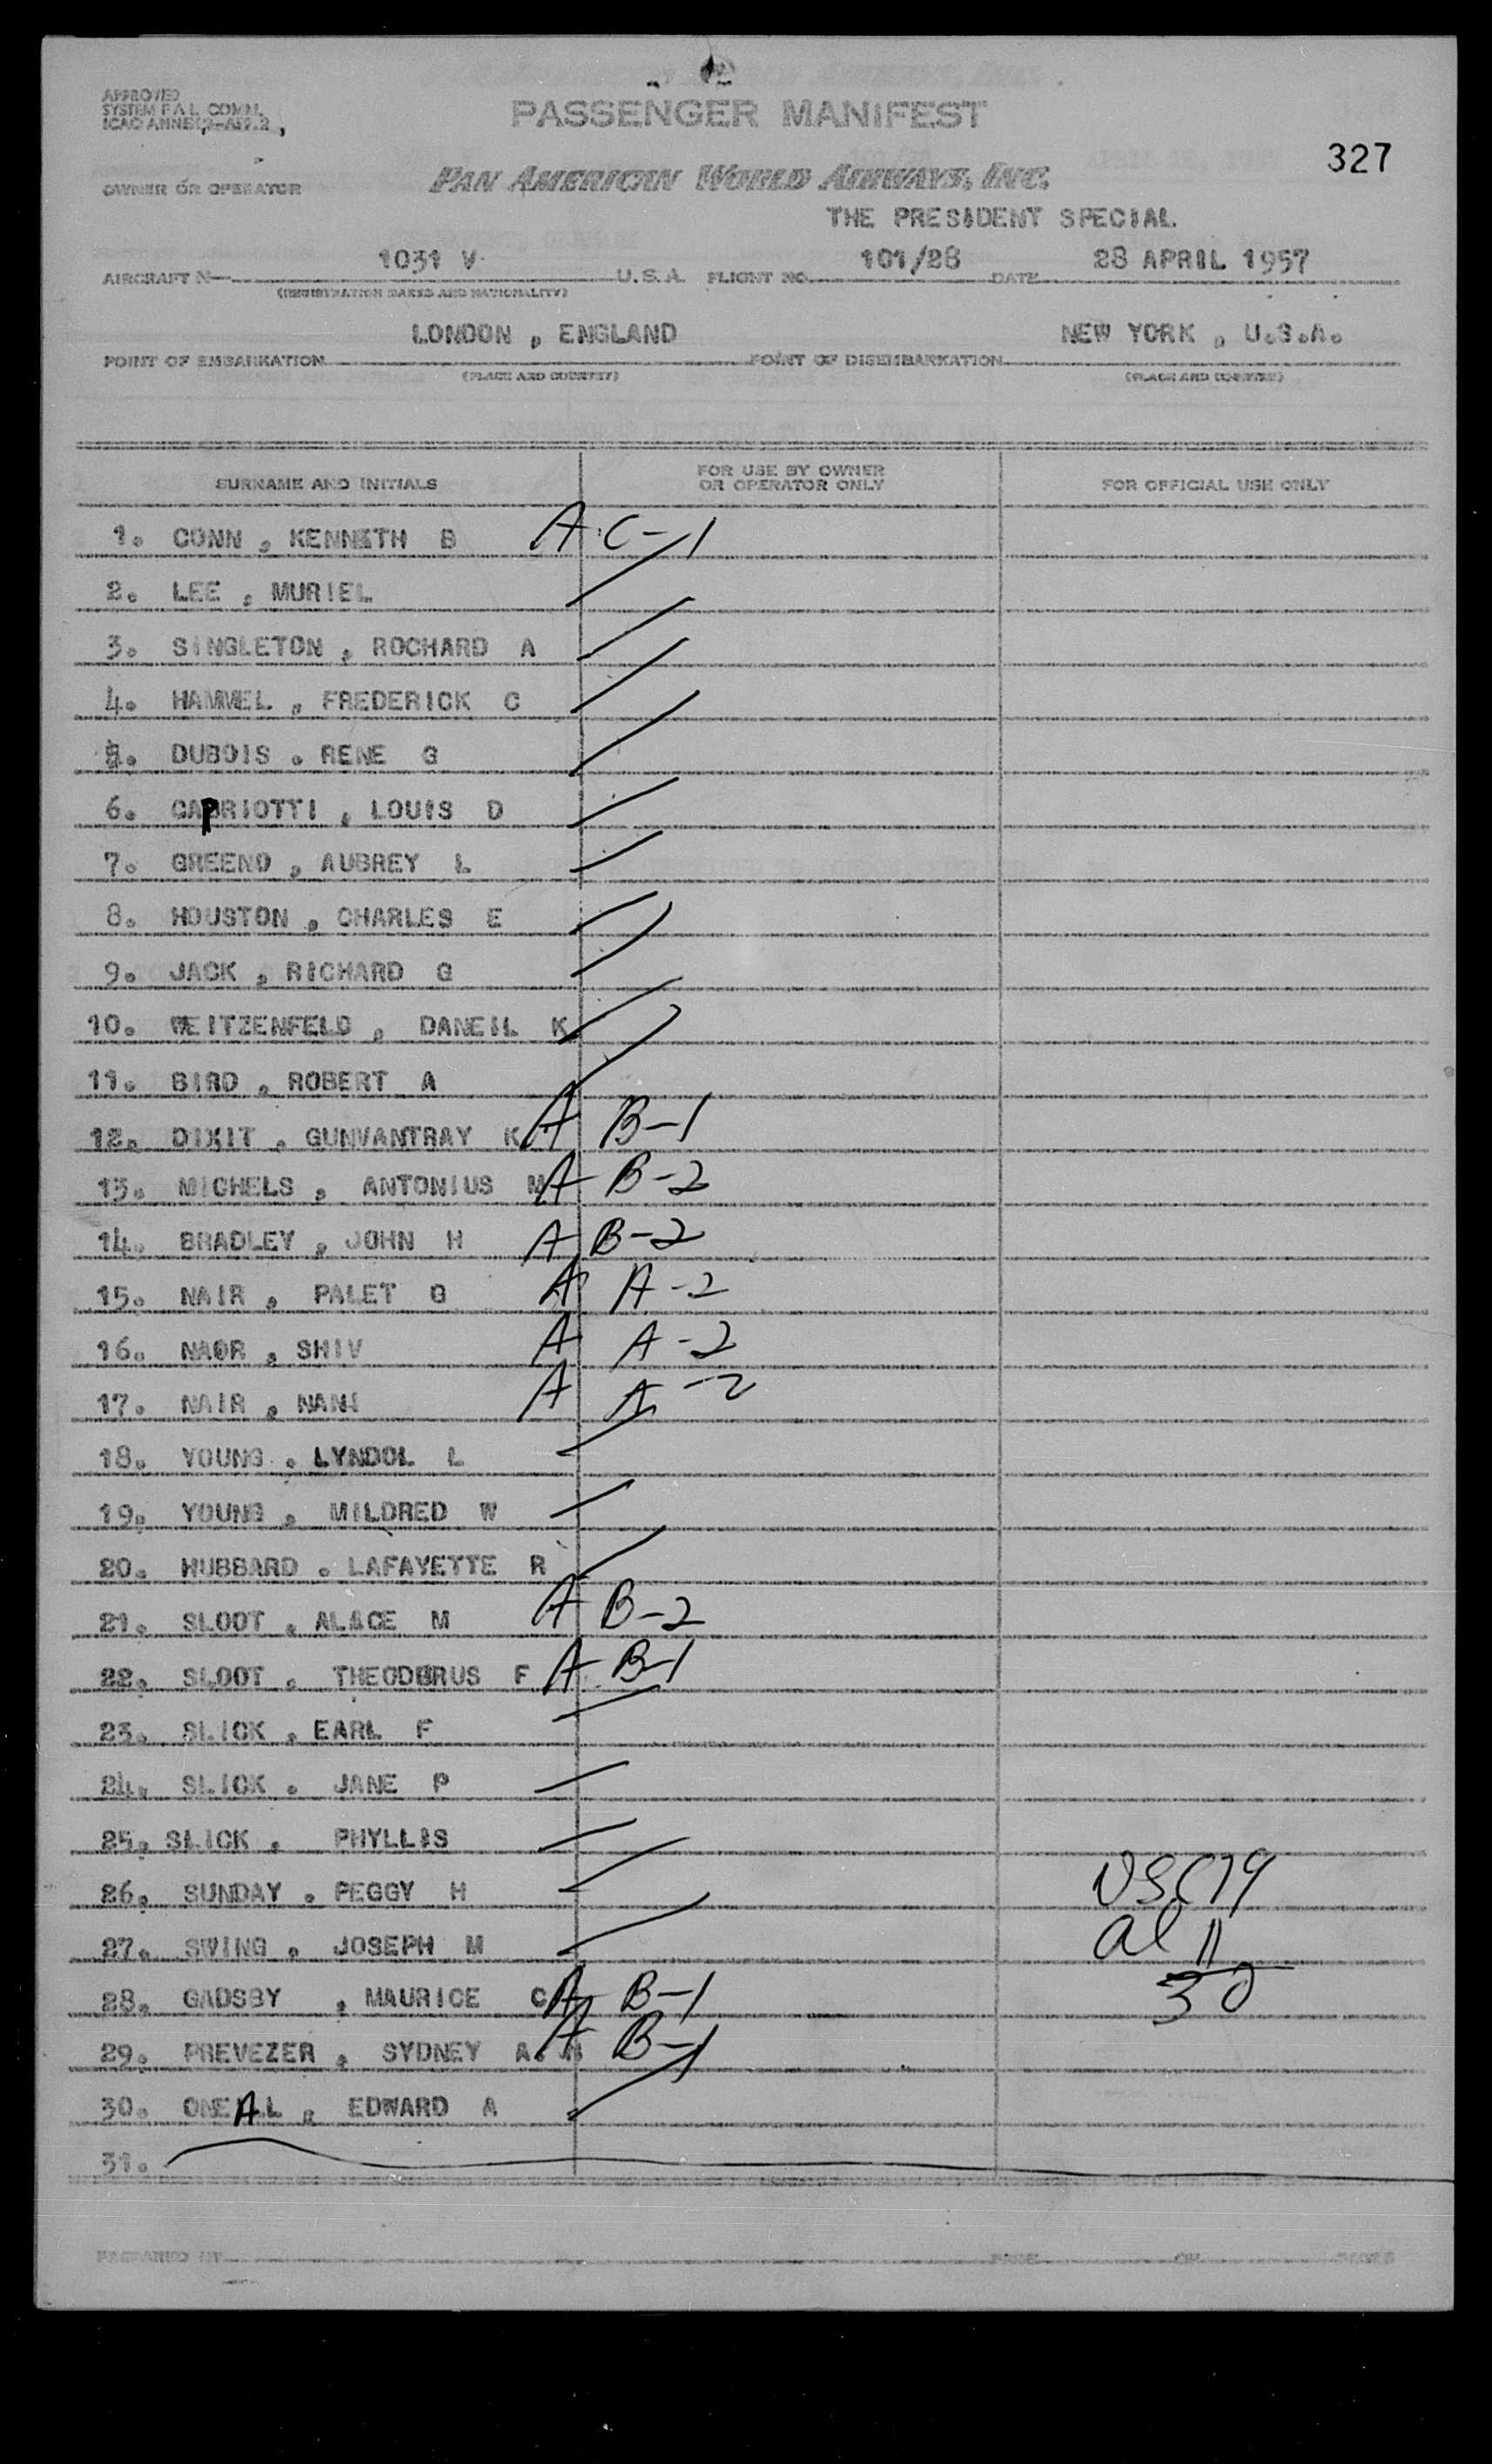 APPROVED
SYSTEM F A L COMM.
PASSENGER MANIFEST
327
OWNER OR OPERATOR
PAN AMERICAN WORLD AIRWAYS, INC.
THE PRESIDENT SPECIAL
AIRCRAFT N 1031 V U.S.A. FLIGHT NO. 101/28 DATE 28 APRIL 1957
(REGISTRATION MARKS AND NATIONALITY)
POINT OF EMBARKATION LONDON , ENGLAND POINT OF DISEMBARKATION NEW YORK , U.S.A.
(PLACE AND COUNTRY) (PLACE AND COUNTRY)
SURNAME AND INITIALS FOR USE BY OWNER OR OPERATOR ONLY FOR OFFICIAL USE ONLY
1. CONN , KENNETH B A C-1
2. LEE , MURIEL
3. SINGLETON , ROCHARD A
4. HAMMEL , FREDERICK C
5. DUBOIS . RENE G
6. CAPRIOTTI , LOUIS D
7. GREENO , AUBREY L
8. HOUSTON , CHARLES E
9. JACK , RICHARD G
10. WEITZENFELD , DANEIL K
11. BIRD , ROBERT A
12. DIXIT , GUNVANTRAY K A B-1
13. MICHELS , ANTONIUS M A B-2
14. BRADLEY , JOHN H A B-2
15. NAIR , PALET G A A-2
16. NAOR , SHIV A A-2
17. NAIR , NANI A A-2
18. YOUNG . LYNDOL L
19. YOUNG , MILDRED W
20. HUBBARD . LAFAYETTE R
21. SLOOT . ALACE M A B-2
22. SLOOT . THEODORUS F A B-1
23. SLICK , EARL F
24. SLICK . JANE P
25. SLICK . PHYLLIS
26. SUNDAY . PEGGY H
27. SWING . JOSEPH M
28. GADSBY , MAURICE C A B-1
29. PREVEZER , SYDNEY A. A B-1
30. ONEAL , EDWARD A
31.
USC 19
al 11
30
PREPARED BY PAGE OF PAGES